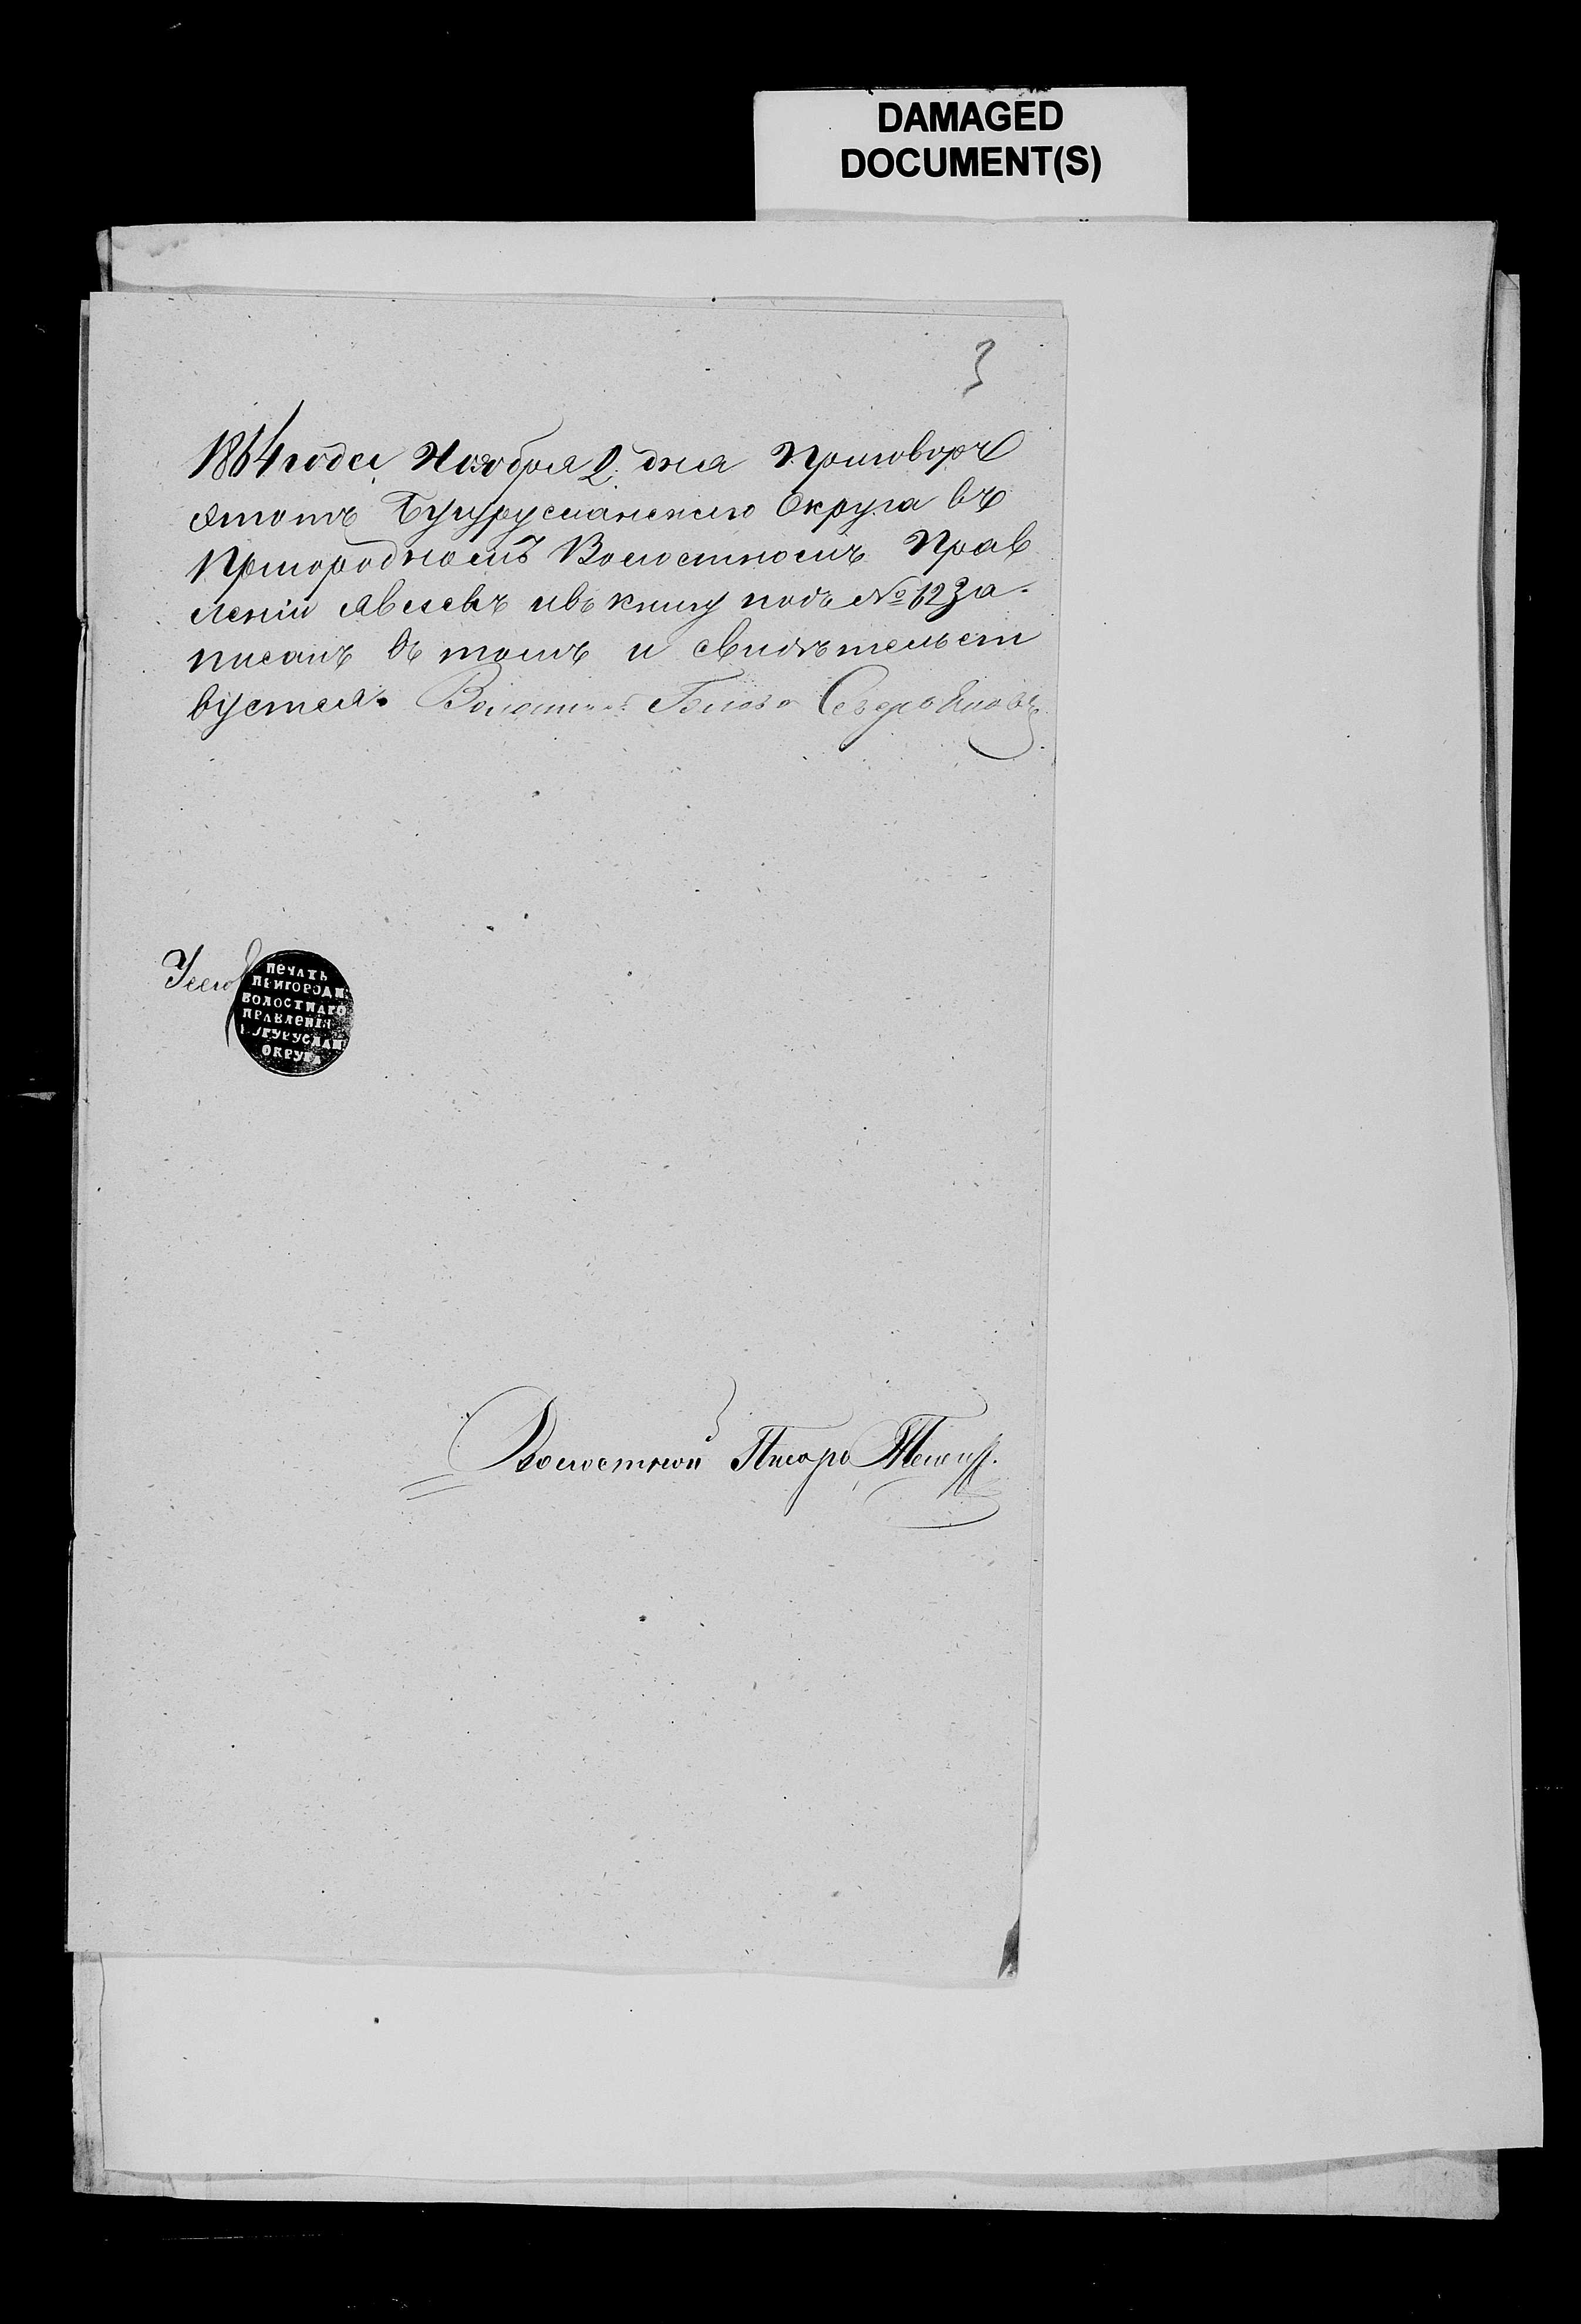 DAMAGED
DOCUMENT(S)
3
1864 года Ноября 2 дня Приговоръ
этотъ Бугурусланскаго Округа въ
Пригородномъ Волостномъ Прав
леніи явленъ ивъ книгу подъ № 12 За-
писанъ въ томъ и свидѣтельст
вуется. Волостной Голова
ПЕЧАТЬ
ПРИГОРОДН:
ВОЛОСТНАГО
ПРАВЛЕНІЯ
БУГУРУСЛАН:
ОКРУГА
Волостной Писарь